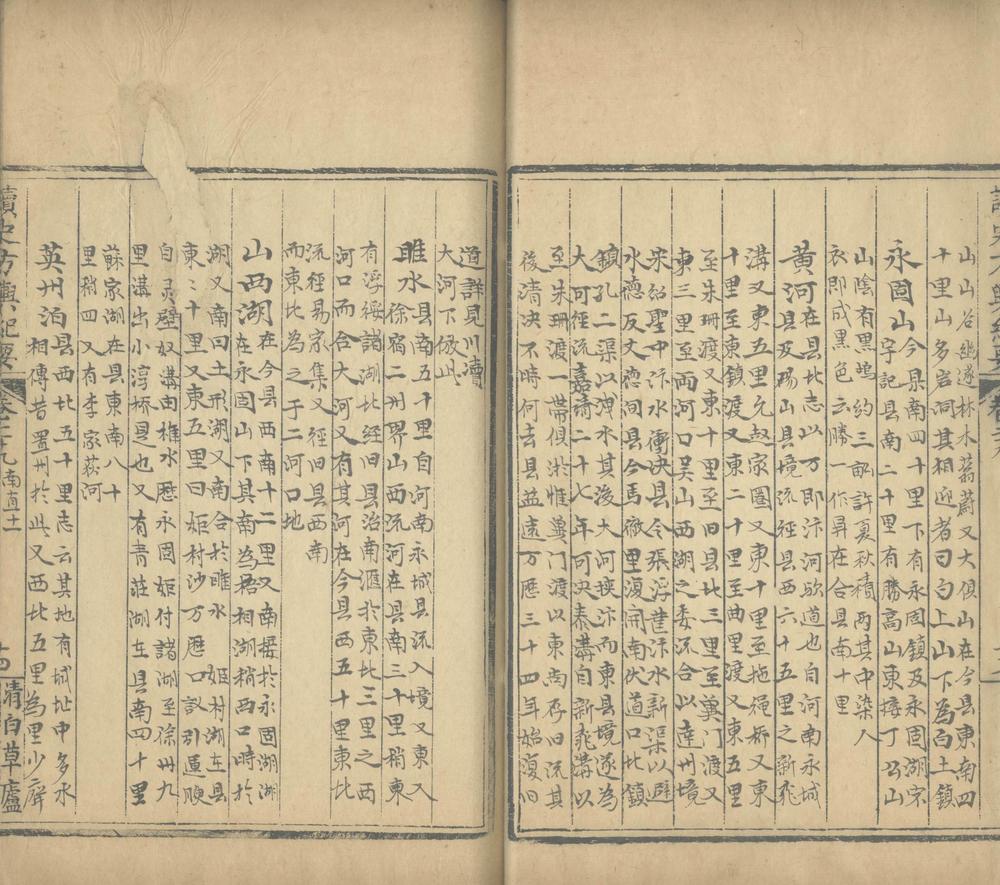 山山谷幽邃林木蓊蔚又大俱山在今县東南四
十里山多岩洞其相迎者曰白上山下為白土鎮
永固山今县南四十里下有永固鎮及永固湖宋
山宇記县南二十里有勝高山東接丁公山
山陰有黑塢約三畝許夏秋積雨其中染人
衣即成黑色云勝一作昇在合县南十里
黄河在县北志以万即汴河故道也自河南永城
县及碭山县境流径县西六十五里之新飛
溝又東五里允赵家圈又東十里至拖繩桥又東
十里至東鎮渡又東二十里至曲里渡又東五里
至朱珊渡又東二十里至旧县北三里至冀门渡又
東三里至两河口吴山西湖之委流合以達州境
宋绍聖中汴水衝决县令張浮萑汴水新渠以避
水德反丈德间县令馬徹里復開南伏道口北鎮
鎮孔二渠以洩水其後大河挾汴而東县境遂為
大河可径流嘉靖二十七年可决秦溝自新飛溝以
至朱珊渡一帶俱淤惟冀门渡以東尚存旧流其
後清决不時何去县益遠万歷三十四年始復旧
道詳見川瀆
大河下倣此
睢水县南五十里自河南永城县流入境又東入
徐宿二州界山西流河在县南三十里稍東
有浮綏諸湖北经旧县治南滙於東北三里之西
河口而合大河又有其河在今县西五十里東北
流径易家集又径旧县西南
而東北為之于二河口地
山西湖在今县西南十二里又南接於永固湖湖
在永固山下其南為梧相湖稍西口時於
湖又南曰土形湖又南合於睢水 姬村湖在县
東二十里又東五里曰姬村沙万歷口設引逼腴
白灵壁奴溝由椎水歷永固姬付諸湖至徐州九
里溝出小浮桥是也又有青莊湖在县南四十里
蘇家湖在县東南八十
里稍四又有李家荻河
英州泊县西北五十里志云其地有城址中多水
相傳昔置州於此又西北五里為里少廨
讀史方輿紀要 卷二十九 南直十一
清白草廬